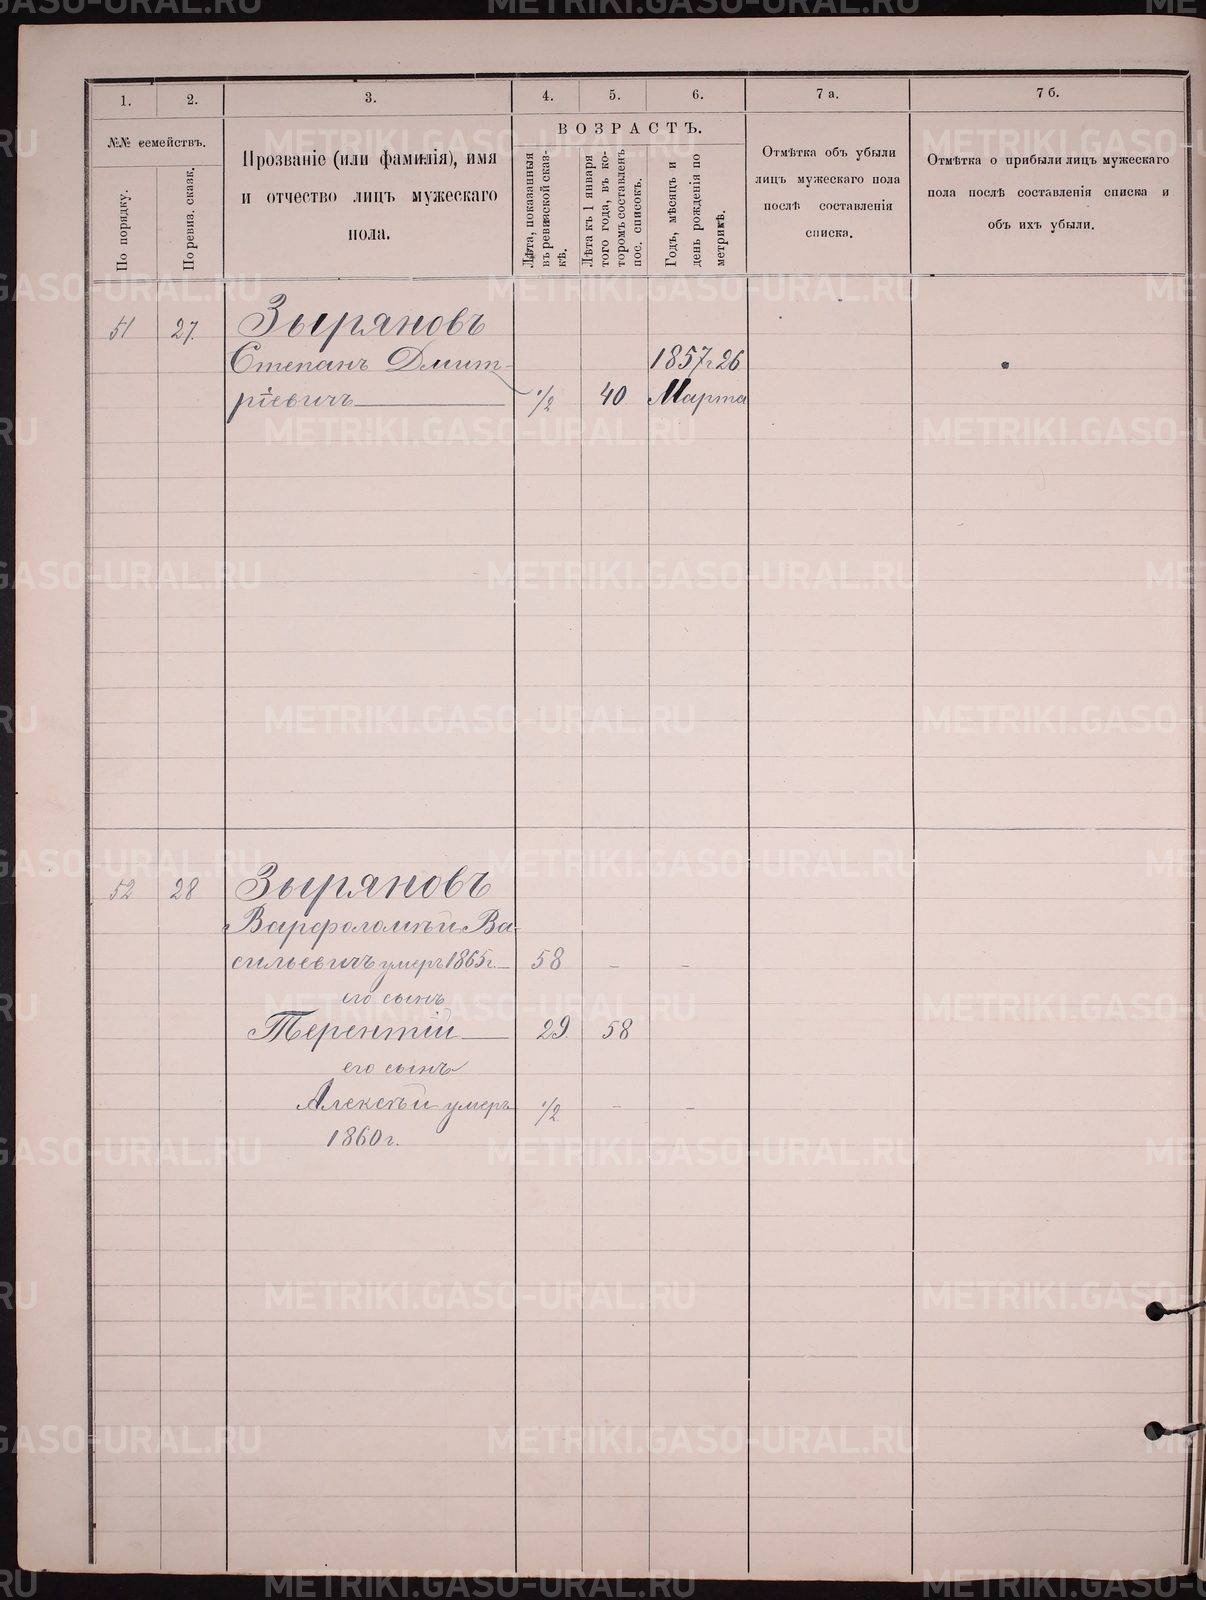 1.
2.
3.
4.
5.
6.
7 а.
7 б.
№№ семействъ.
По порядку.
По ревиз. сказк.
Прозваніе (или фамилія), имя
и отчество лицъ мужескаго
пола.
ВОЗРАСТЪ.
Лѣта, показанныя
въ ревизской сказ-
кѣ.
Лѣта къ 1 января
того года, въ ко-
торомъ составленъ
пос. списокъ.
Годъ, мѣсяцъ и
день рожденія по
метрикѣ.
Отмѣтка объ убыли
лицъ мужескаго пола
послѣ составленія
списка.
Отмѣтка о прибыли лицъ мужескаго
пола послѣ составленія списка и
объ ихъ убыли.
51 27. Зыряновъ
Степанъ Дмит- 1857 г 26
ріевичъ 1/2 40 Марта
52 28 Зыряновъ
Варфоломѣй Ва-
сильевичъ умеръ 1865 г. 58 - -
его сынъ
Терентій 29. 58
его сынъ
Алексѣй умеръ 1/2 - -
1860 г.
METRIKI.GASO-URAL.RU